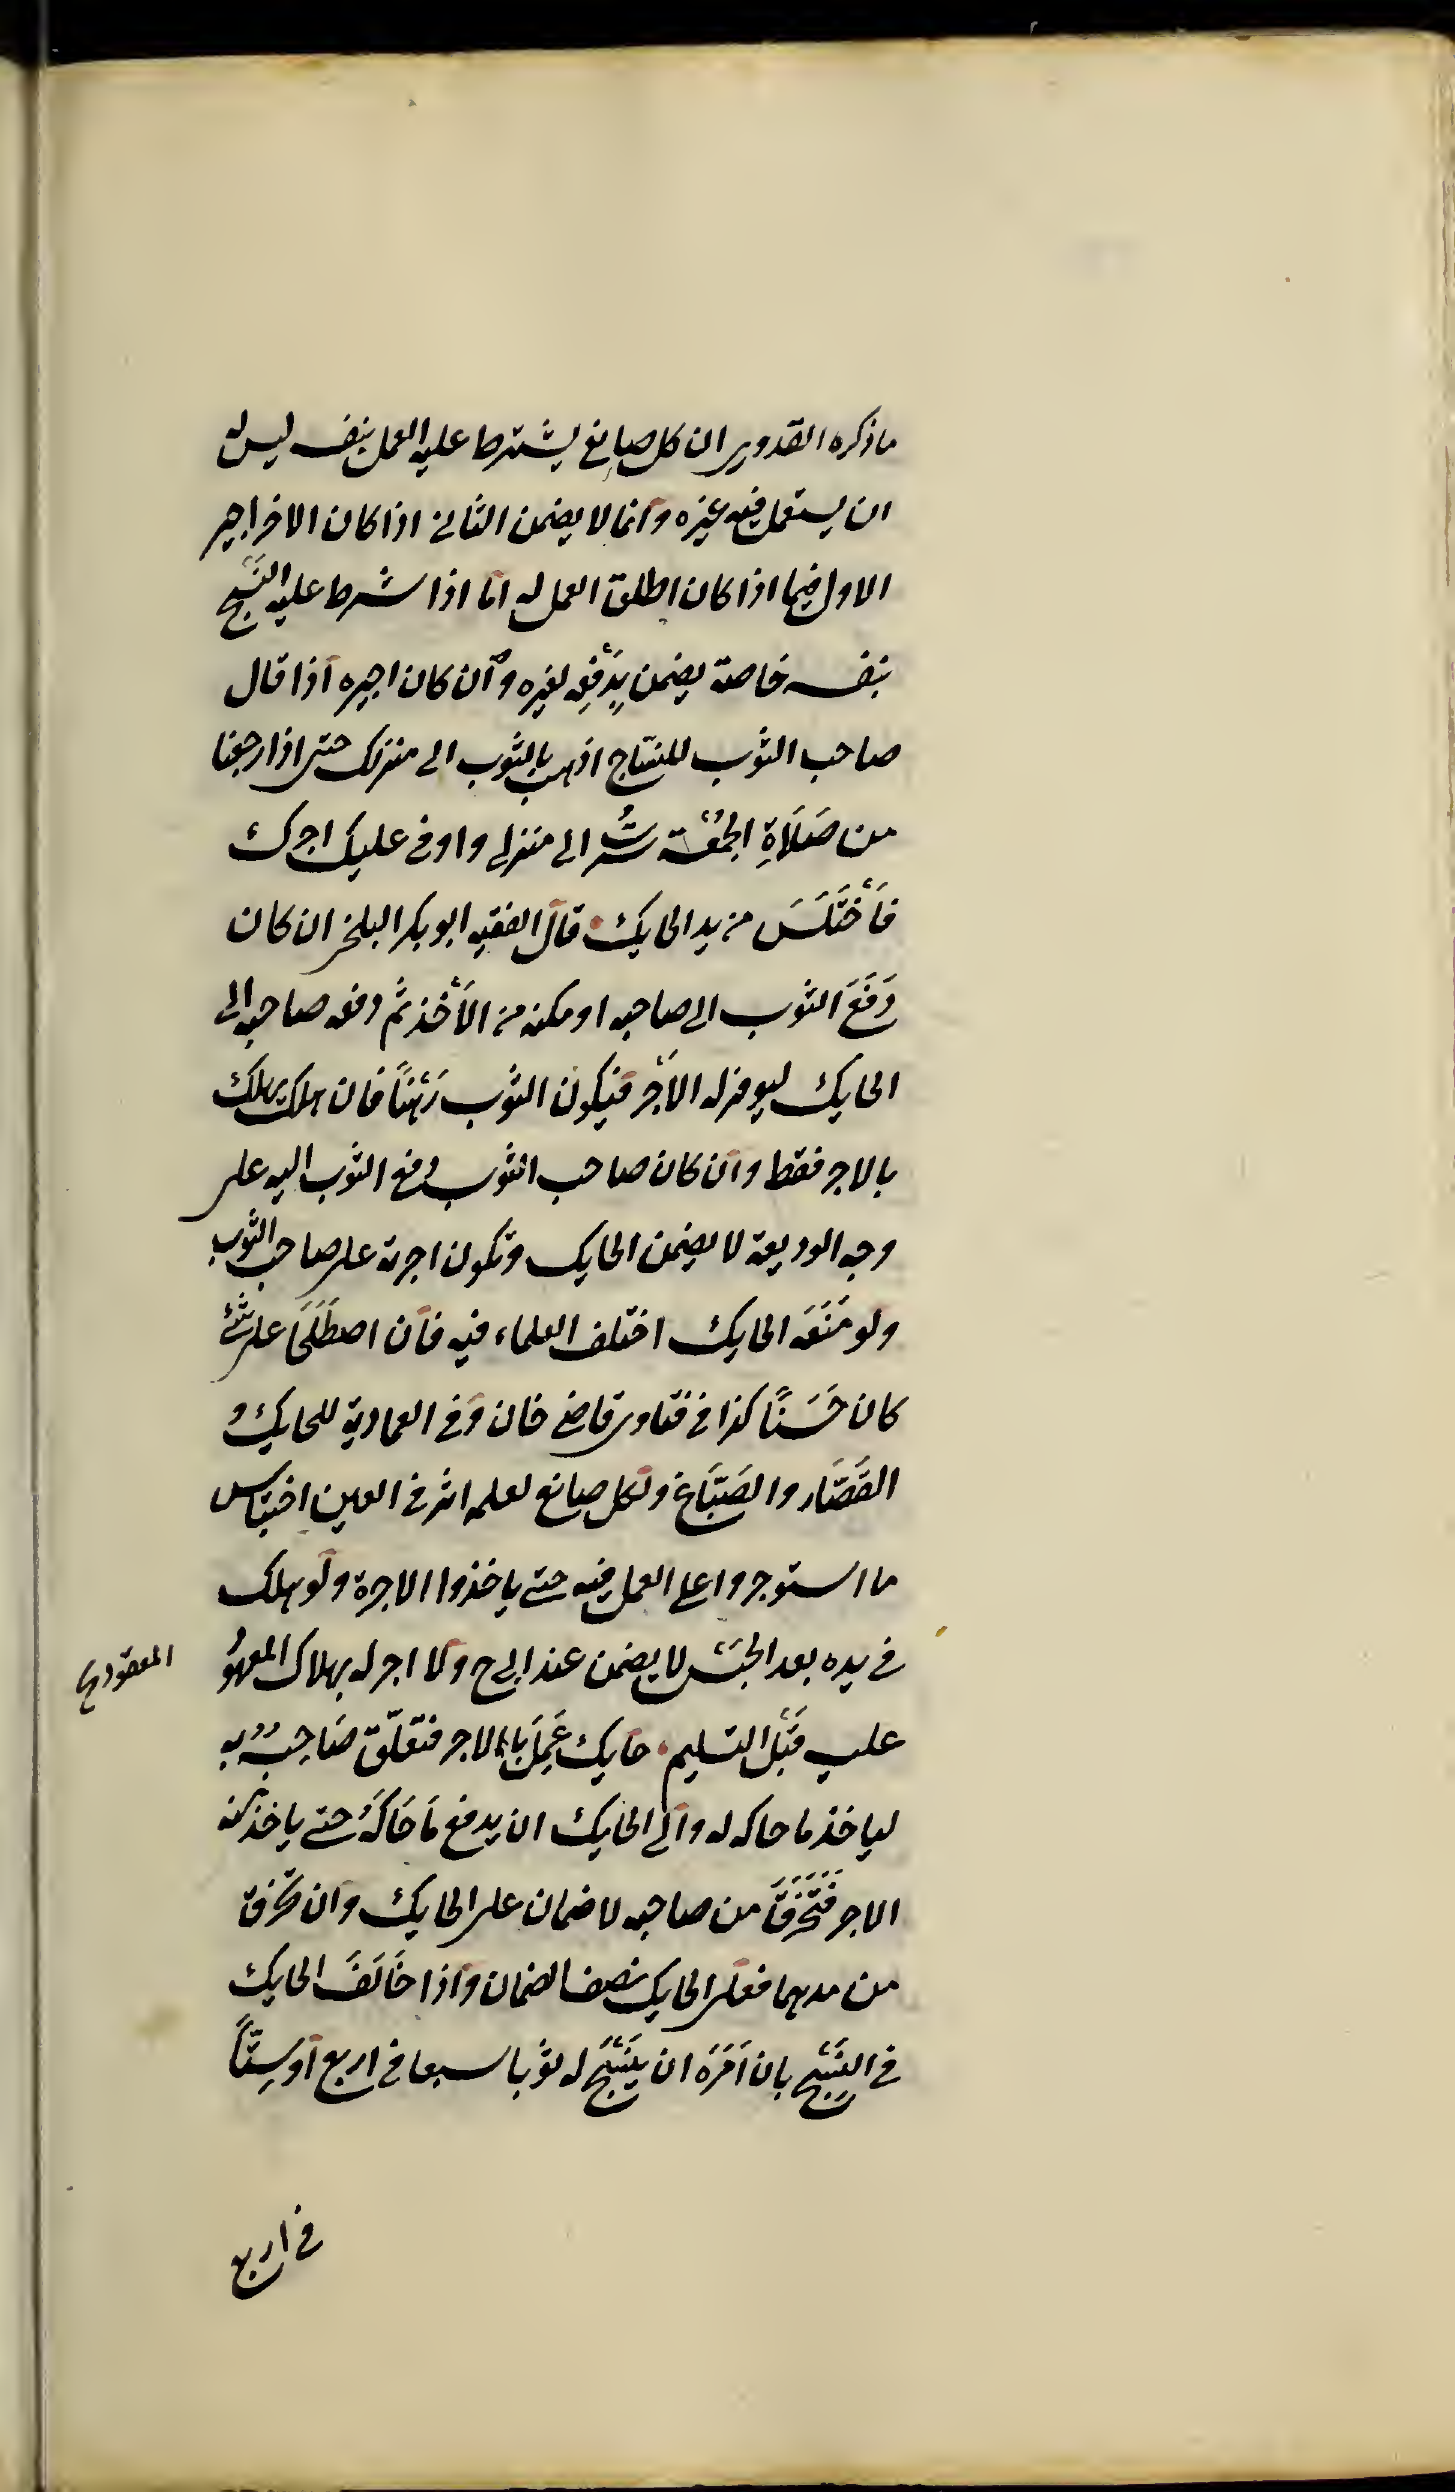 ما ذكره القدوري ان كل صانع يشترط عليه العمل بنفسه ليس له
ان يستعمل فيه غيره وانما لا يضمن الثاني اذا كان الاخر اجير
الاول فيما اذا كان اطلق العمل له اما اذا شرط عليه النَّسْج
بنفسه خاصة يضمن بِدَفْعِه لغيره وان كان اجيره اذا قال
صاحب الثوب للنساج اذهب بالثوب الى منزلك حتى اذا رجعنا
من صَلَاةِ الجُمْعَة سِرْتُ الى منزلي واوفي عليك اجرك
فَاخْتَلَسَ من يد الحايك قال الفقيه ابو بكر البلخي ان كان
دَفَعَ الثوب الى صاحبه او مكنه من الأَخْذ ثم دفعه صاحبه الى
الحايك ليوفيه له الأَجْر فيكون الثوب رَهْنًا فان هلك يهلك
بالاجر فقط وان كان صاحب الثوب دفع الثوب اليه على
وجه الوديعة لا يضمن الحايك وتكون اجرته على صاحب الثوب
ولو مَنَعَه الحايك اختلف العلماء فيه فان اصطَلَحَا على شَيْءٍ
كان حَسَنًا كذا في فتاوى قاضي خان وفي العمادية للحايك و
القَصَّار والصَبَّاغ ولكل صانع لعمله اثر في العين احتباس
ما استوجروا على العمل فيه حتى ياخذوا الاجرة ولو هلك
في يده بعد الحَبْس لا يضمن عند ابي ح ولا اجر له بهلاك المعهُو
المعقود
عليه قَبْلَ التسليم حايك عَمِلَ بالاجر فتعلّق صَاحِبُهُ به
لياخذ ما حاكه له وابى الحايك ان يدفع مَا حَاكَهُ حتى ياخذ منه
الاجر فَتَخَرَّقَ من صاحبه لا ضمان على الحايك وان تخرق
من مدهما فعلى الحايك نصف الضمان واذا خَالَفَ الحايك
في النَسْج بان اَمَرَه ان يَنْسِجَ له ثوبا سبعا في اربع او سِتًّا
في اربع